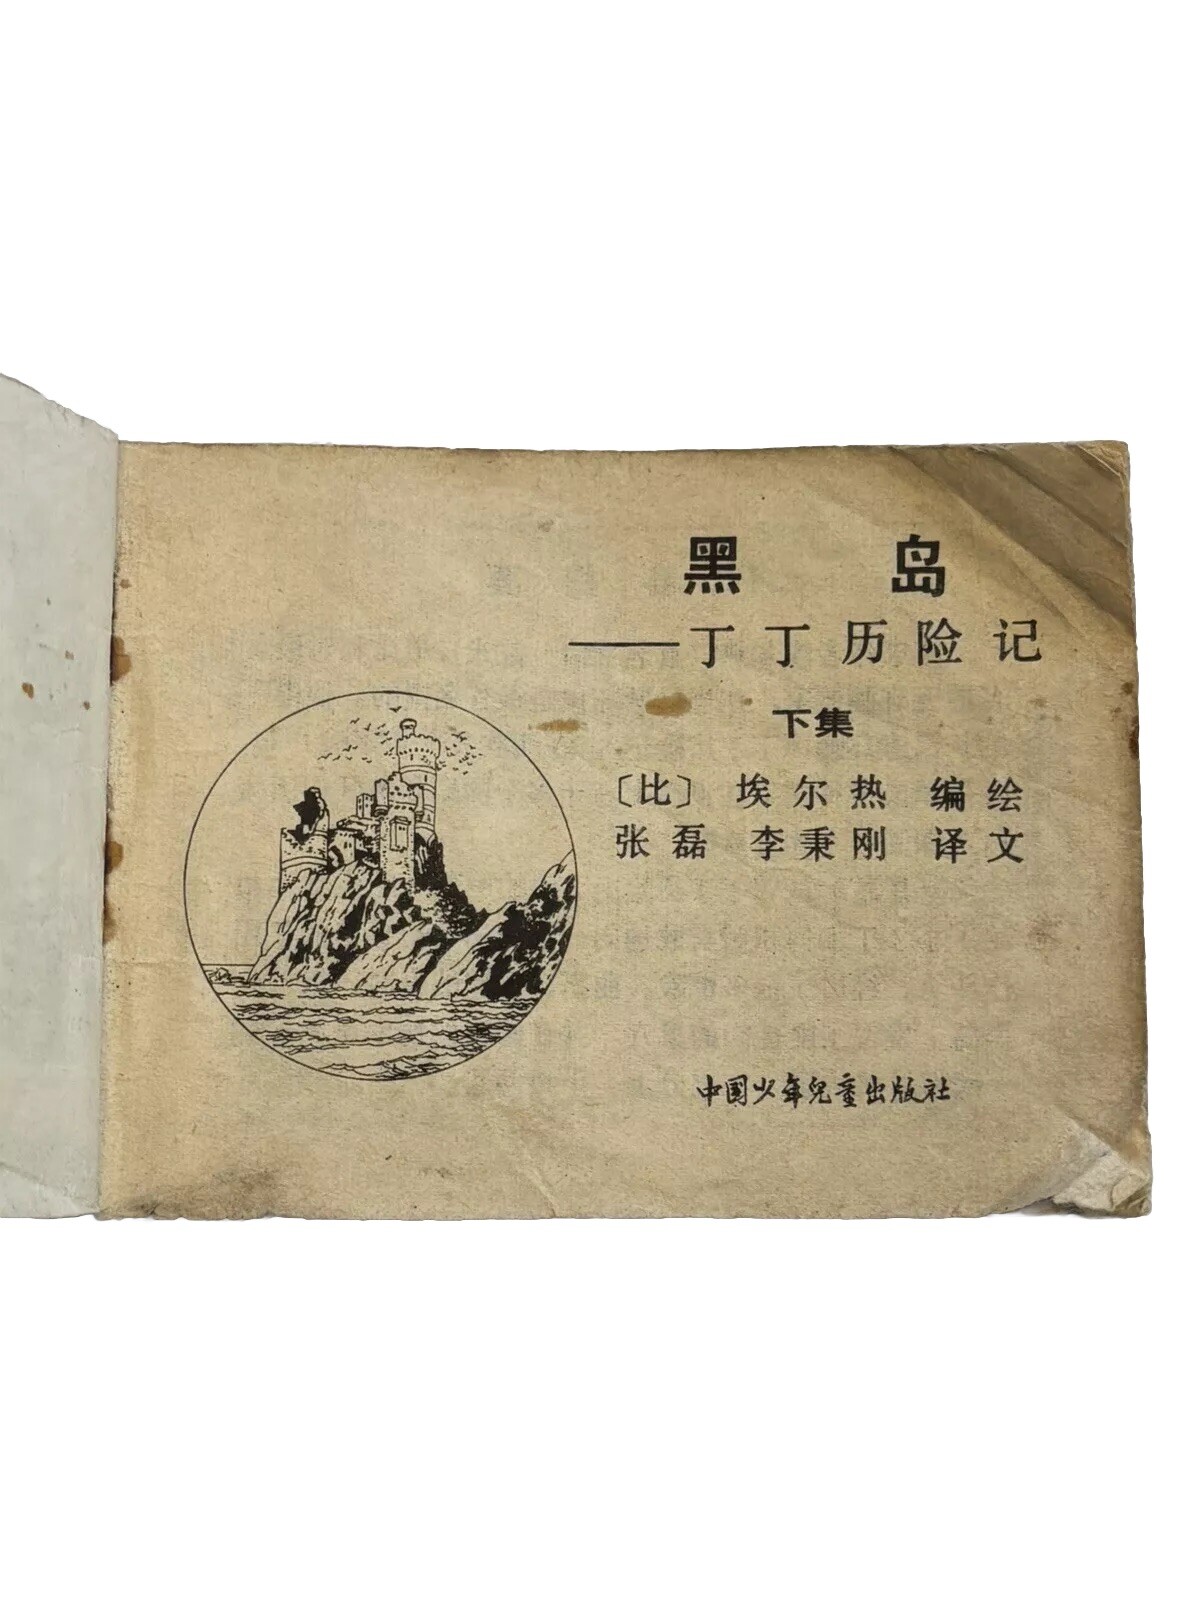 黑 岛
——丁丁历险记
下集
〔比〕 埃尔热 编绘
张磊 李秉刚 译文
中国少年儿童出版社